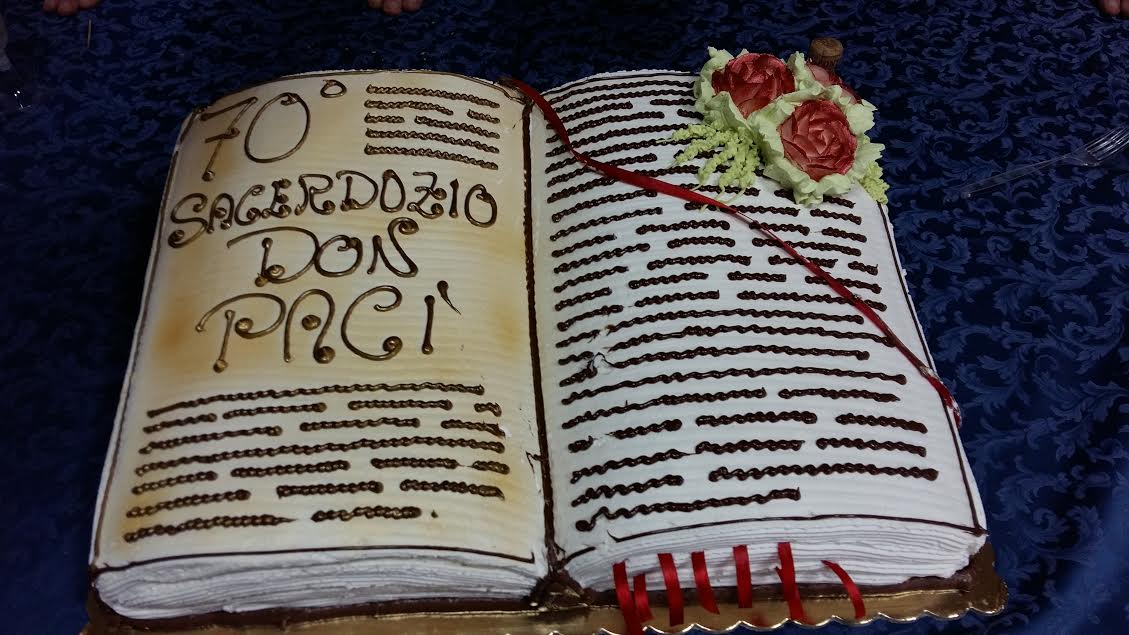 70°
SACERDOZIO
DON
PACI'